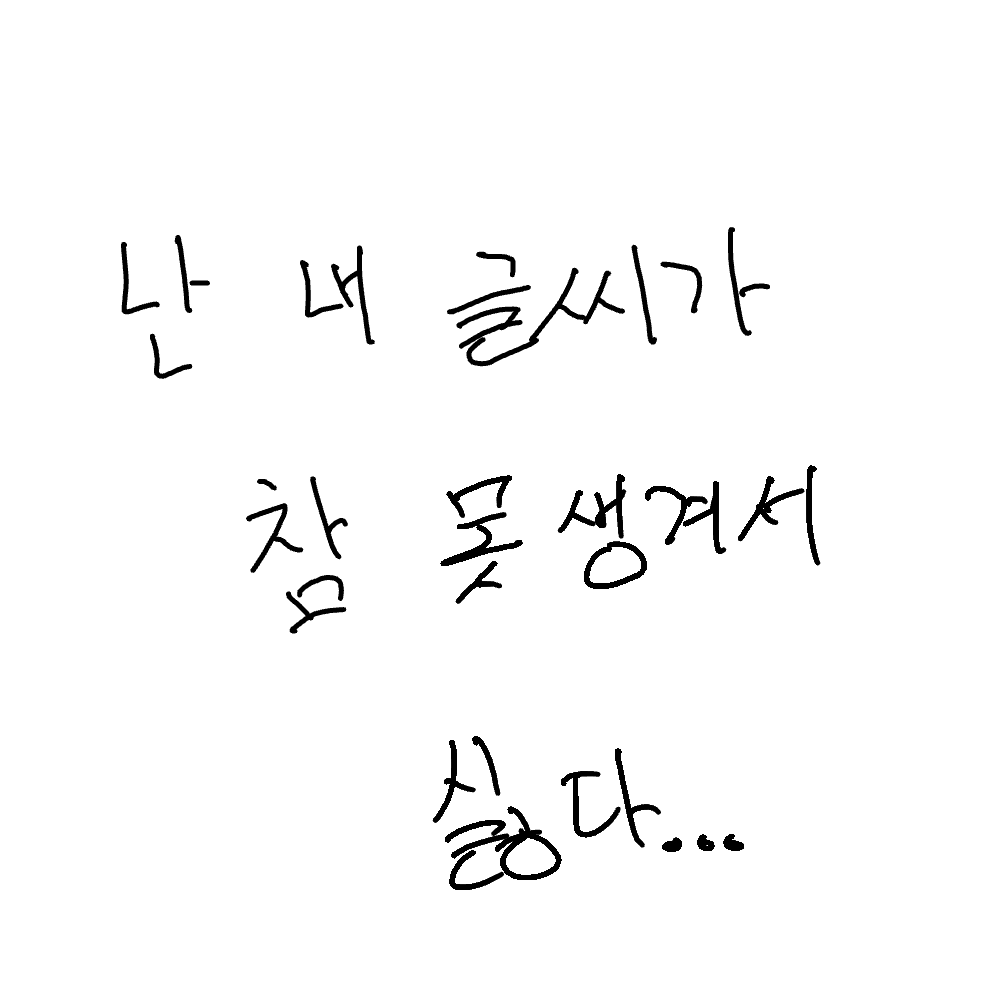 난 내 글씨가
참 못생겨서
싫다...